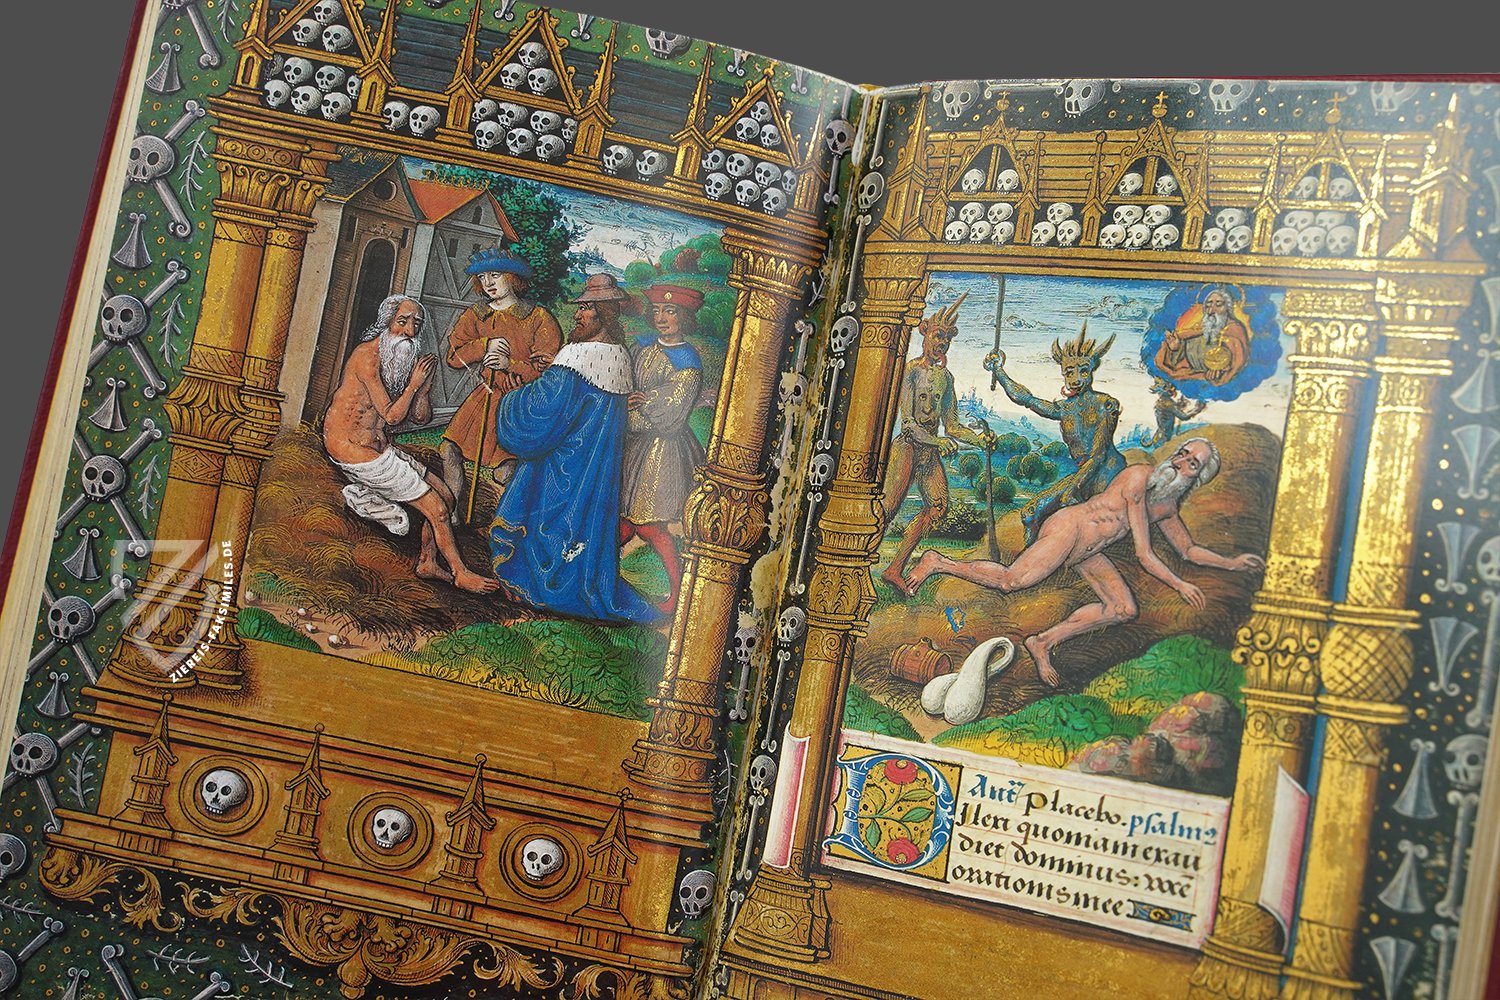 ZIEREIS-FAKSIMILES.DE
Ant̃ placebo. psalmꝰ
Ilexi quoniam exau
diet dominus: vocẽ
orationis mee